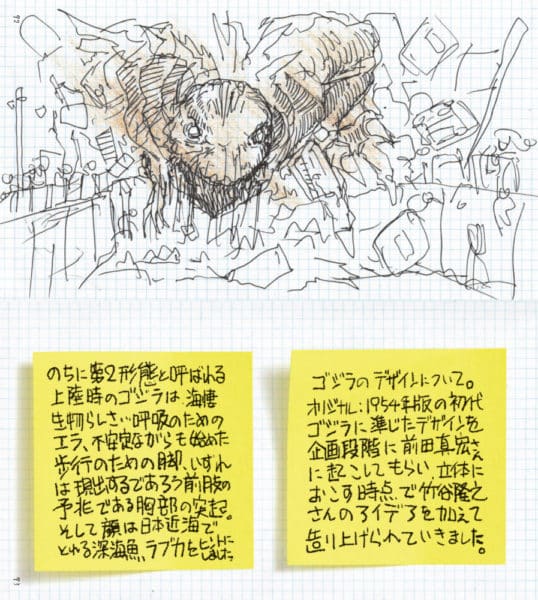 72
のちに第2形態と呼ばれる
上陸時のゴジラは、海棲
生物らしさい呼吸のための
エラ、不安定ながらも始めた
歩行のための脚、いずれ
は現出するであろう前肢の
予兆である胸部の突起。
そして顔は日本近海で
とれる深海魚、ラブカをヒントに
しました
ゴジラのデザインについて。
オリジナル:1954年版の初代
ゴジラに準じたデザインを
企画段階に前田真宏さん
に起こしてもらい、立体に
おこす時点で竹谷隆之
さんのアイデアを加えて
造り上げられていきました。
73